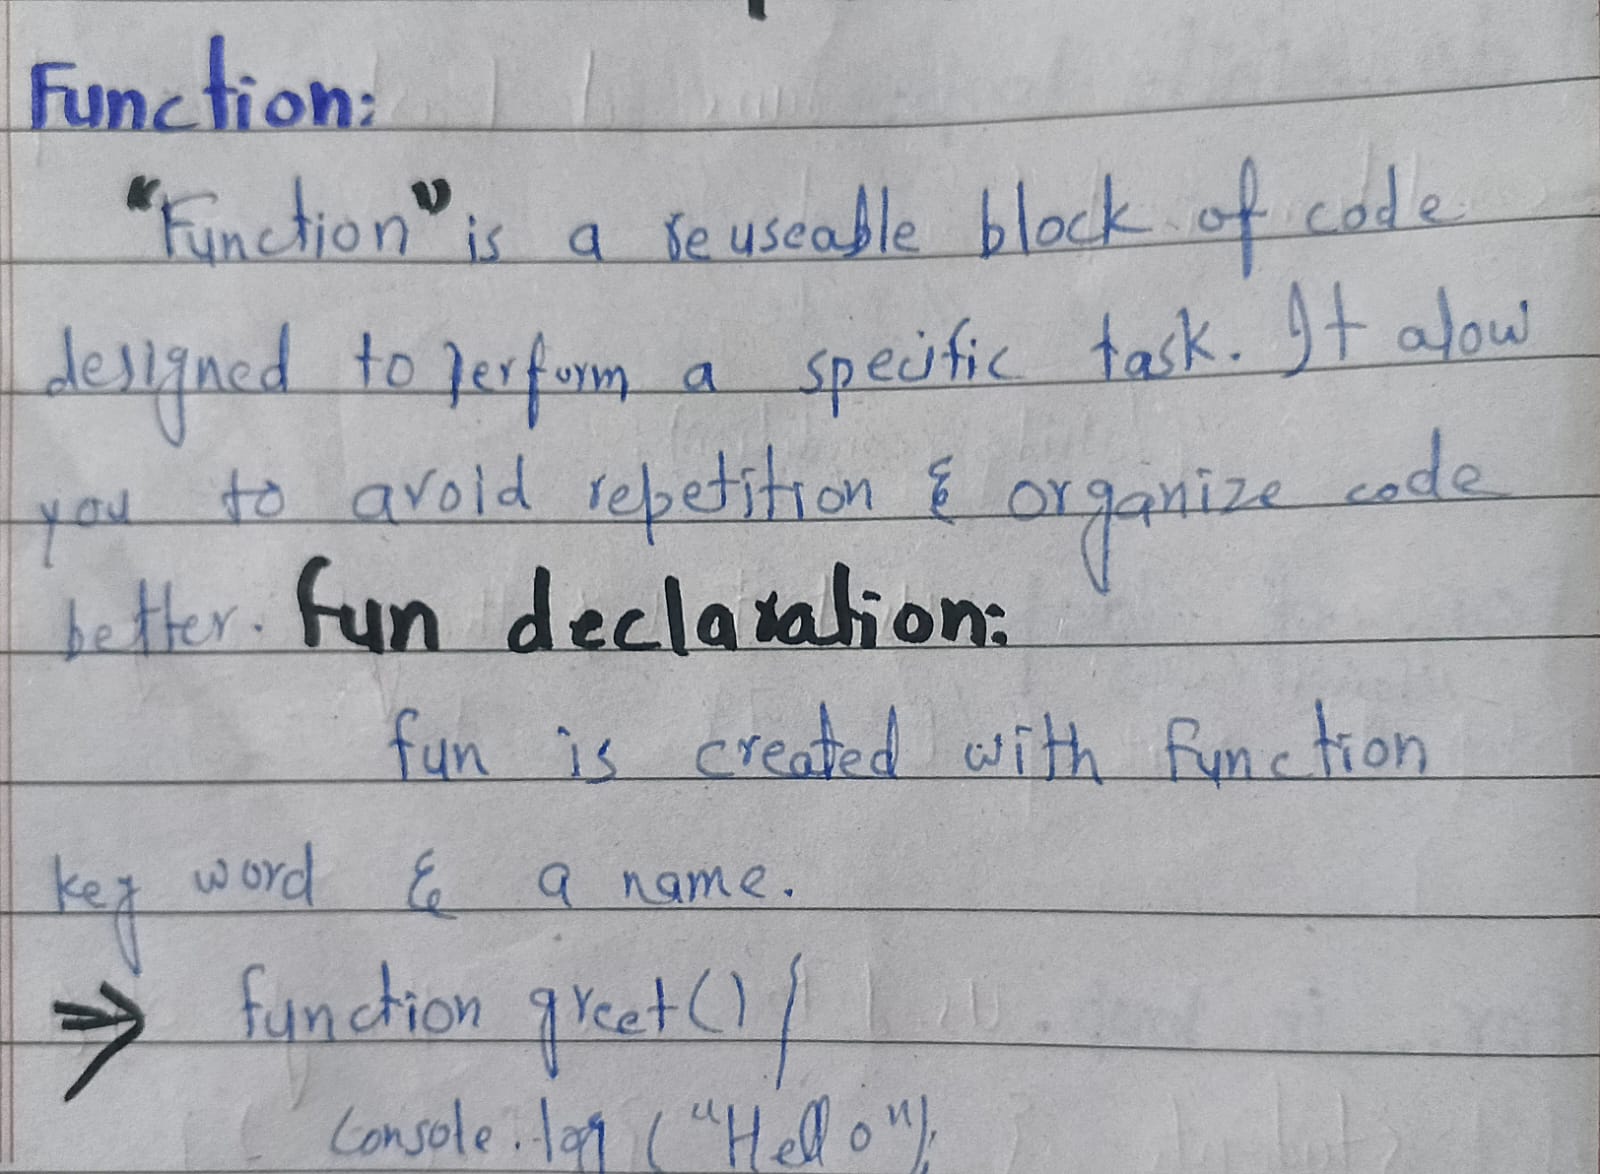 Function:
"Function" is a reuseable block of code
designed to perform a specific task. It alow
you to avoid repetition & organize code
better. fun declaration:
fun is created with function
key word & a name.
⇒ function greet() {
console.log ("Hello");